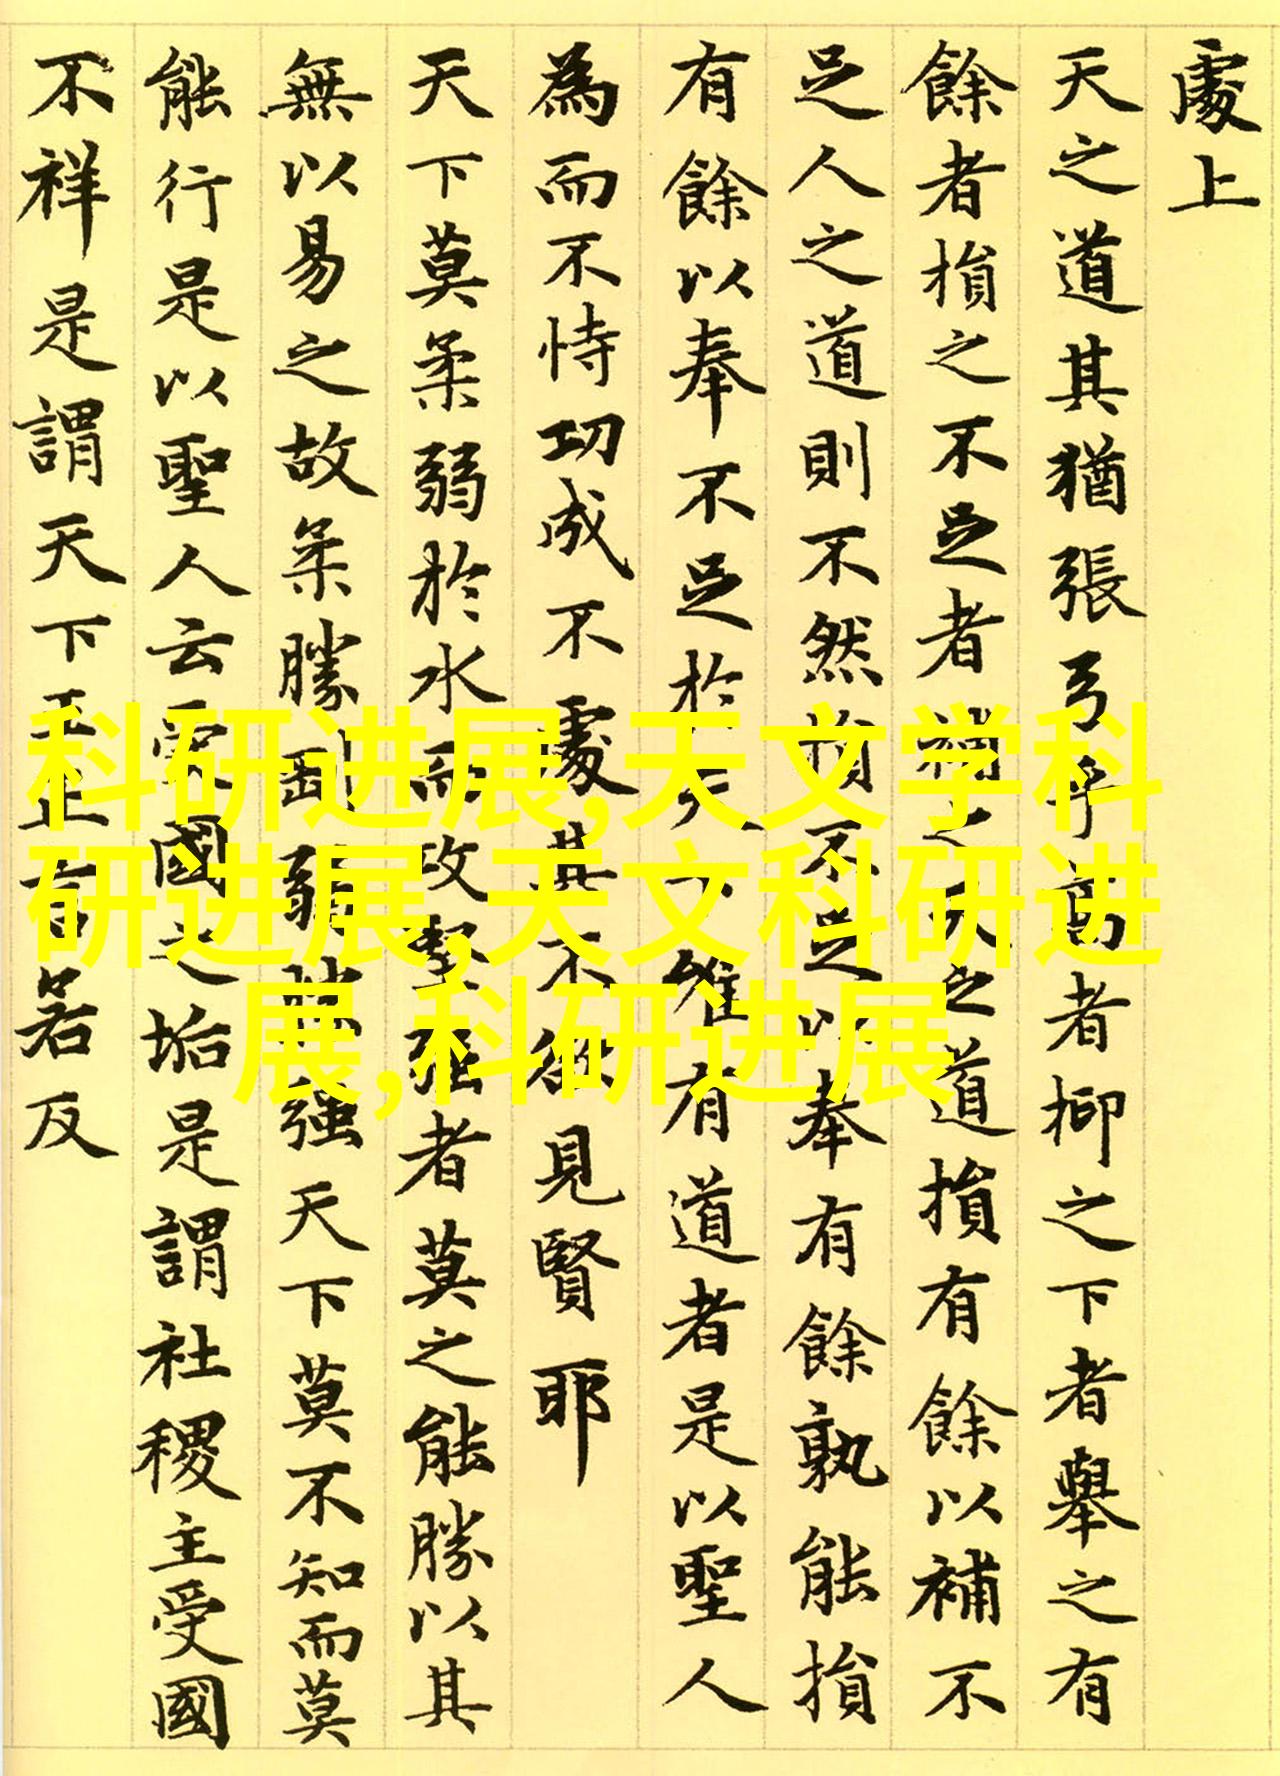 處上
天之道其猶張弓乎高者抑之下者舉之有
餘者損之不足者補之天之道損有餘以補不
足人之道則不然損不足以奉有餘孰能損
有餘以奉不足於天下唯有道者是以聖人
為而不恃功成不處其不欲見賢耶
天下莫柔弱於水而攻堅强者莫之能勝以其
無以易之故柔勝剛弱勝强天下莫不知而莫
能行是以聖人云受國之垢是謂社稷主受國
不祥是謂天下王正言若反
科研进展,天文学科
研进展,天文科研进
展,科研进展